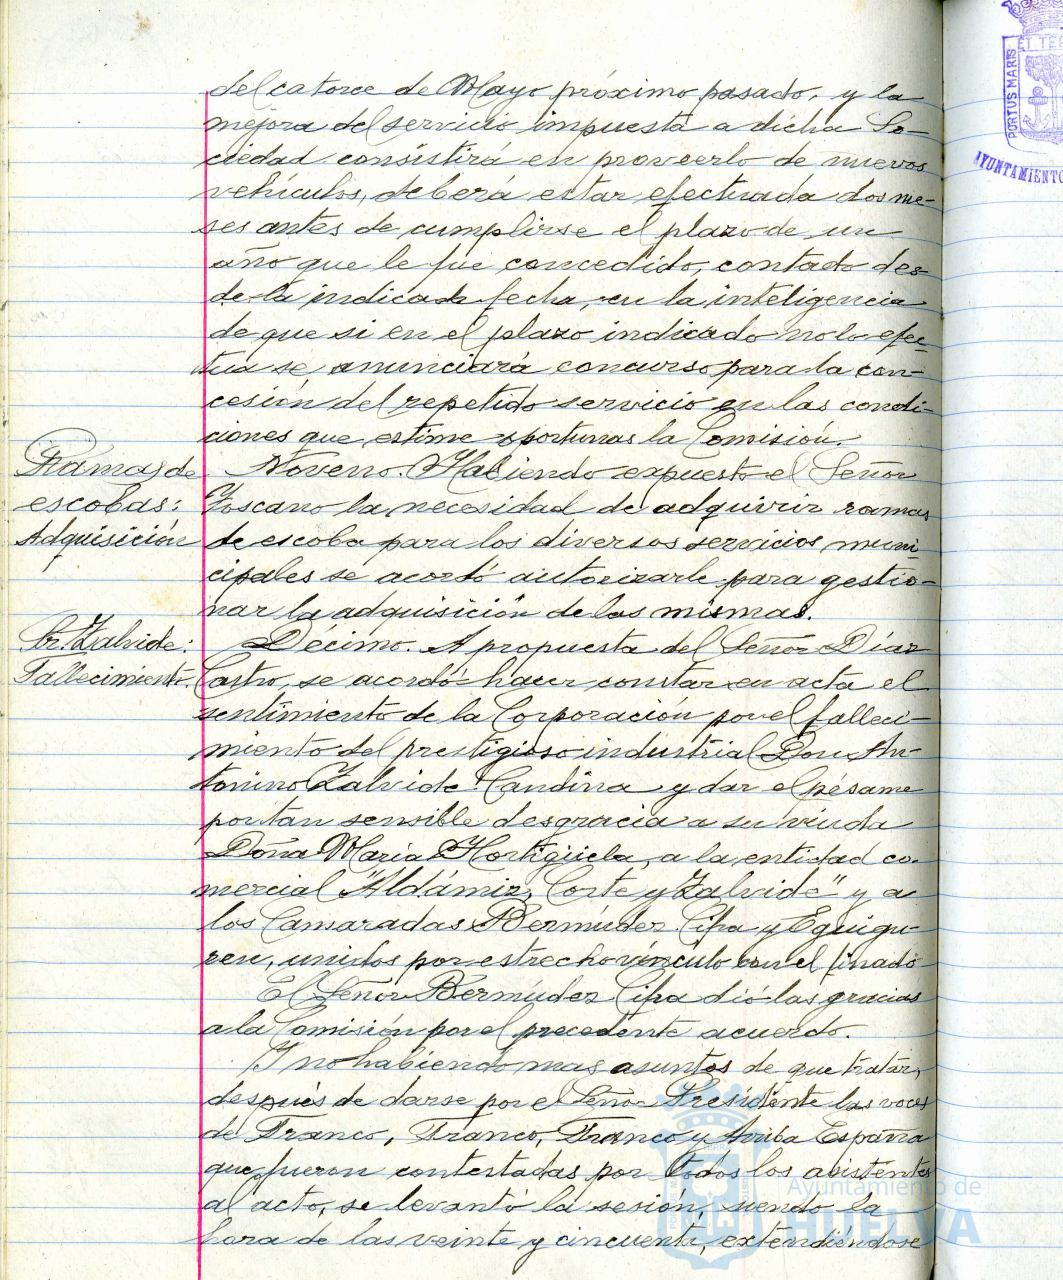 del catorce de Mayo próximo pasado, y la
mejora del servicio impuesta a dicha So-
ciedad consistirá en proveerlo de nuevos
vehículos, deberá estar efectuada dos me-
ses antes de cumplirse el plazo de un
año que le fue concedido, contado des-
de la indicada fecha, en la inteligencia
de que si en el plazo indicado no lo efec-
túa se anunciará concurso para la con-
cesión del repetido servicio en las condi-
ciones que estime oportunas la Comisión.
Ramas de
escobas:
Adquisición
Noveno. Habiendo expuesto el Señor
Toscano la necesidad de adquirir ramas
de escoba para los diversos servicios muni-
cipales se acordó autorizarle para gestio-
nar la adquisición de las mismas.
Sr. Zalvide:
Fallecimiento.
Décimo. A propuesta del Señor Díaz
Castro, se acordó hacer constar en acta el
sentimiento de la Corporación por el falleci-
miento del prestigioso industrial Don An-
tonino Zalvide Candina y dar el pésame
por tan sensible desgracia a su viuda
Doña María Hortigüela, a la entidad co-
mercial "Aldámiz, Corte y Zalvide" y a
los Camaradas Bermúdez Cifra y Eguigu-
ren, unidos por estrecho vínculo con el finado
El Señor Bermúdez Cifra dió las gracias
a la Comisión por el precedente acuerdo.
Y no habiendo mas asuntos de que tratar,
después de darse por el Señor Presidente las voces
de Franco, Franco, Franco y Arriba España
que fueron contestadas por todos los asistentes
al acto, se levantó la sesión, siendo la
hora de las veinte y cincuenta, extendiéndose
PORTUS MARIS
ET TER
AYUNTAMIENTO
Ayuntamiento de
HUELVA